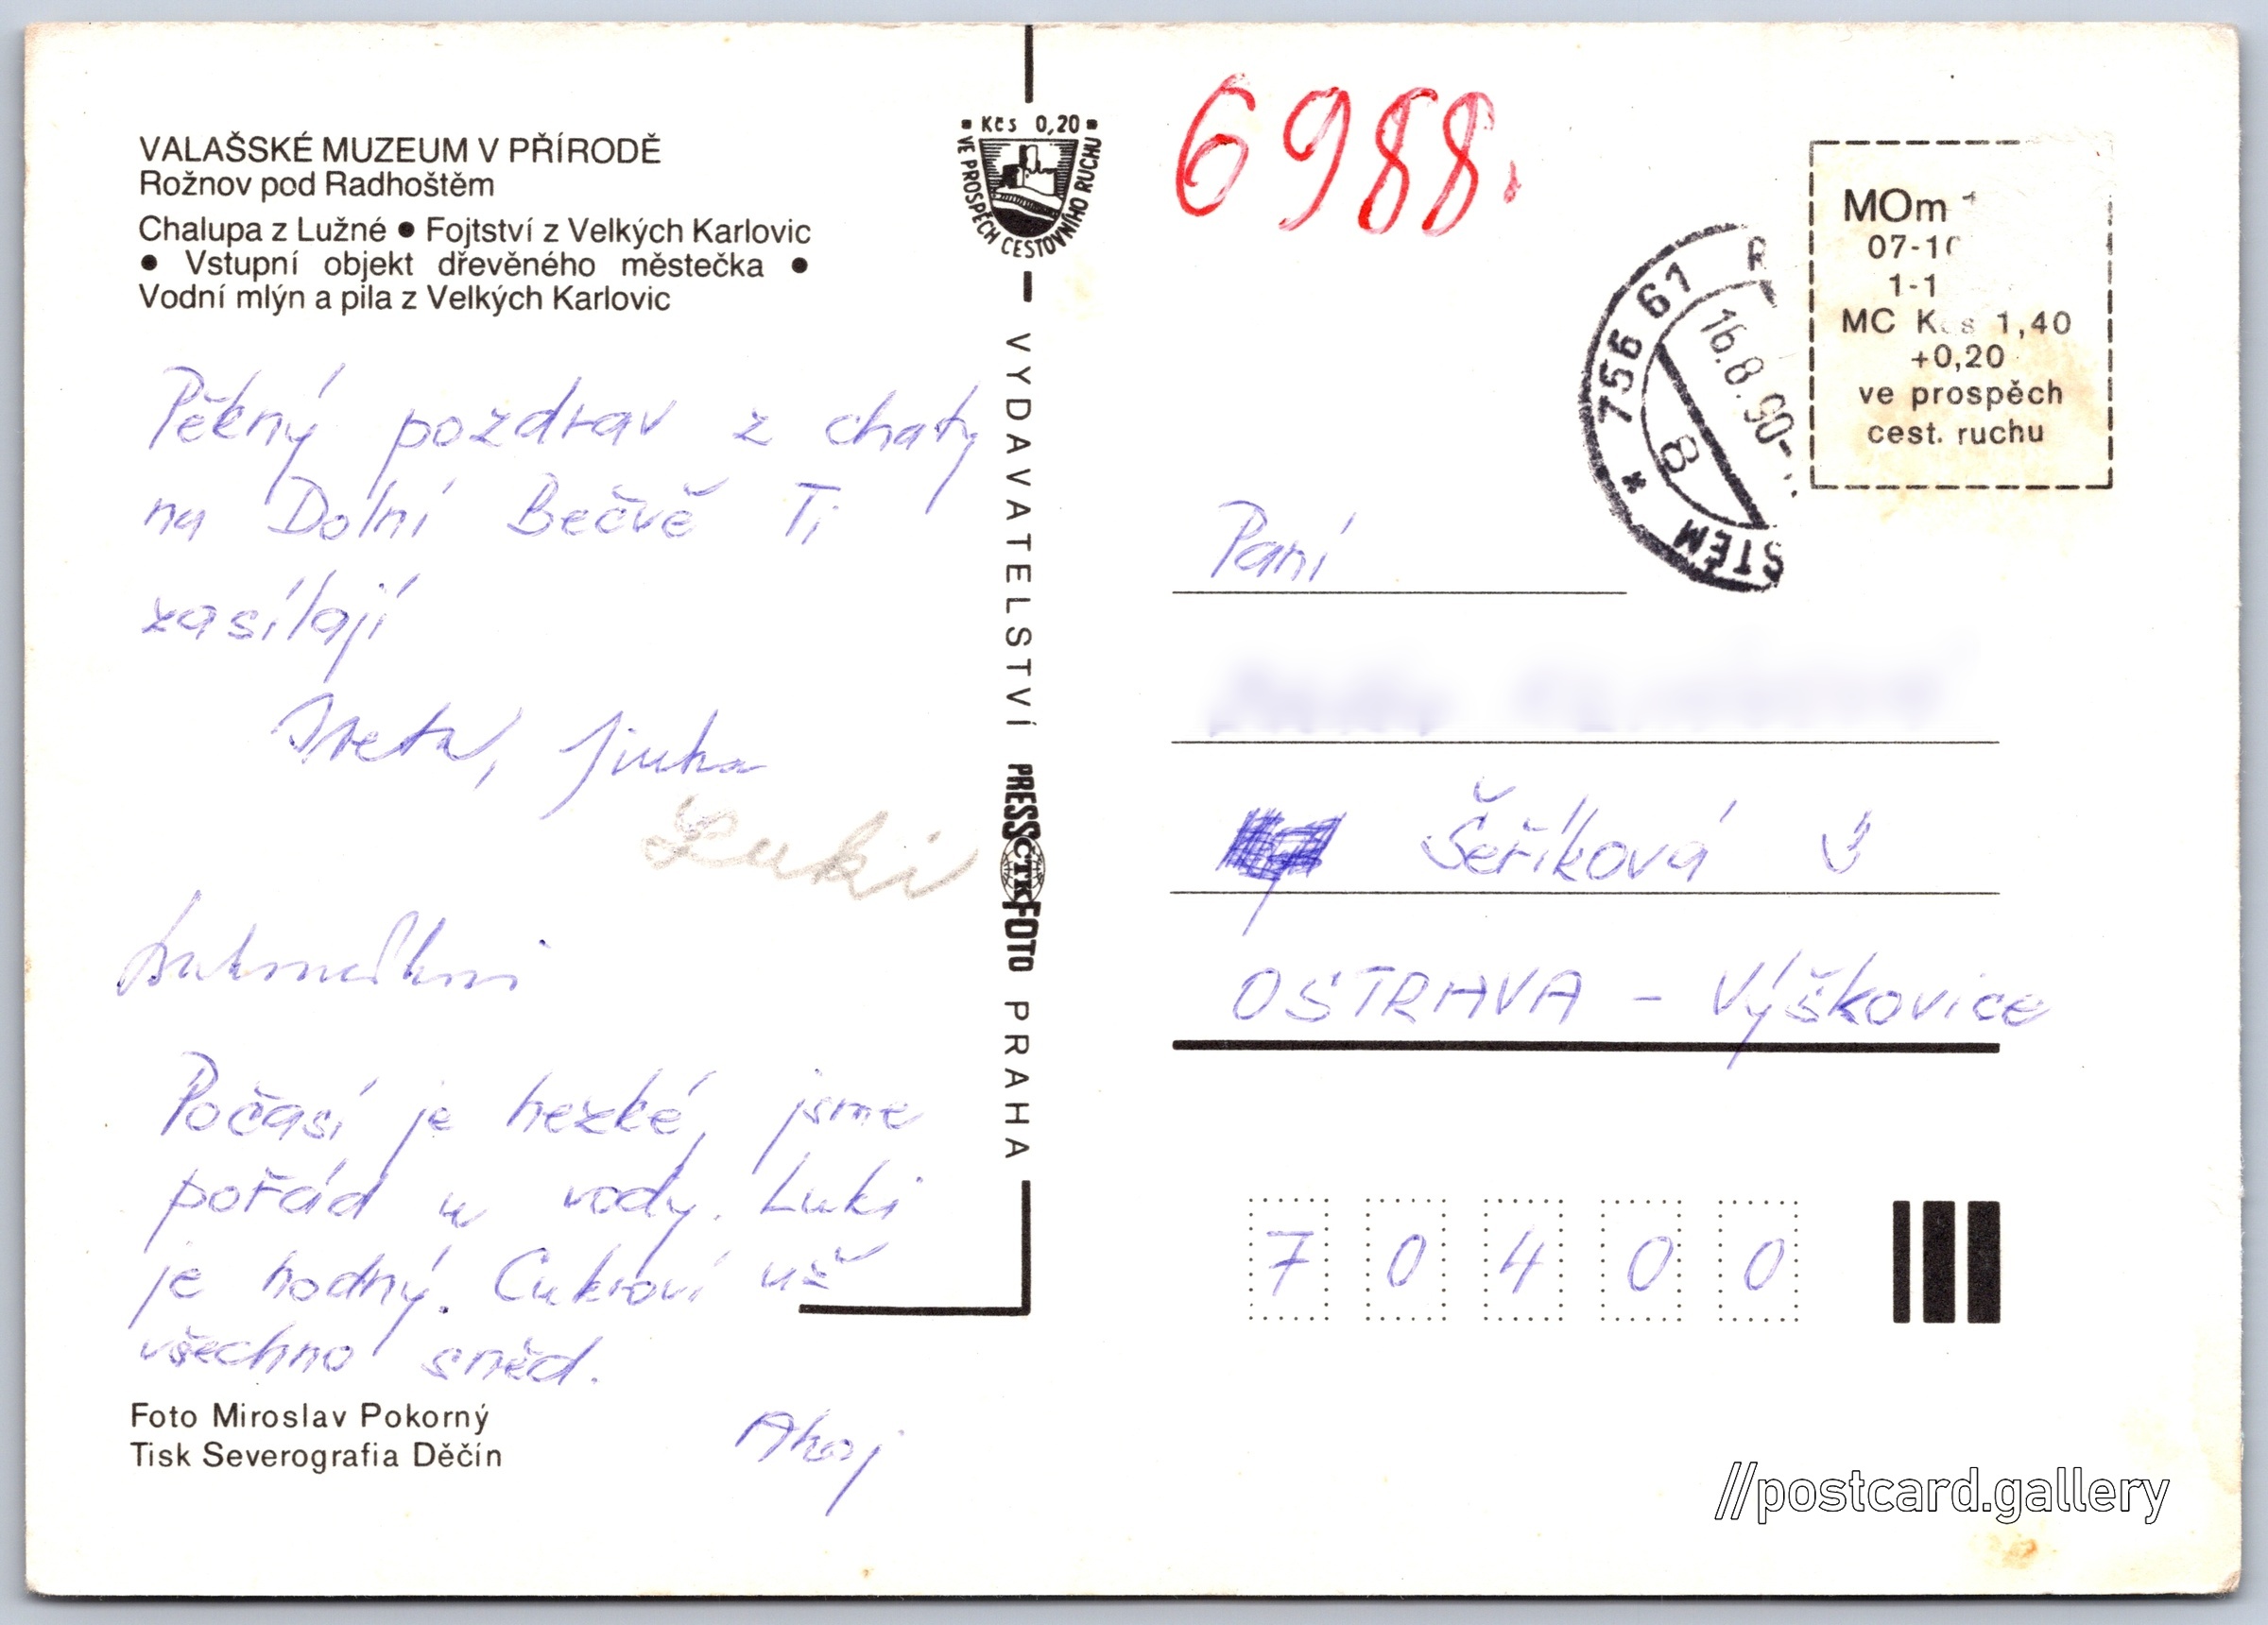 VALAŠSKÉ MUZEUM V PŘÍRODĚ
Rožnov pod Radhoštěm
Chalupa z Lužné ● Fojtství z Velkých Karlovic
● Vstupní objekt dřevěného městečka ●
Vodní mlýn a pila z Velkých Karlovic
Pěkný pozdrav z chaty
na Dolní Bečvě Ti
zasílají
Iveta,
Luki
Počasí je hezké, jsme
pořád u vody. Luki
je hodný. Cukroví už
všechno sněd.
Ahoj
Foto Miroslav Pokorný
Tisk Severografia Děčín
Kčs 0,20
VE PROSPĚCH CESTOVNÍHO RUCHU
VYDAVATELSTVÍ PRESSČTKFOTO PRAHA
6988.
756 61 R
16.8.90
B
ŠTĚM
MOm
07-10
1-1
MC Kčs 1,40
+0,20
ve prospěch
cest. ruchu
Paní
Šeříková
OSTRAVA - Výškovice
7 0 4 0 0
//postcard.gallery